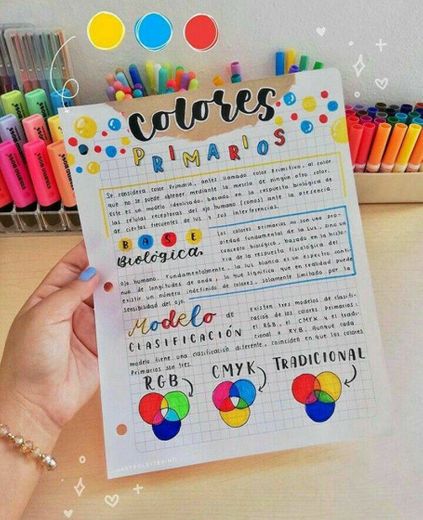 Colores
PRIMARIOS
Se considera color Primario, antes llamado color Primitivo, al color
que no se puede obtener mediante la mezcla de ningún otro color.
Este es un modelo idealizado, basado en la respuesta biológica de
las células receptoras del ojo humano (conos) ante la presencia
de ciertas frecuencias de luz y sus interferencias.
BASE
Biológica
Los colores primarios no son una pro-
piedad fundamental de la luz, sino un
concepto biológico, basado en la
de la respuesta fisiológica del
ojo humano. Fundamentalmente, la luz blanca es un espectro
de longitudes de onda, lo que significa que en realidad puede
existir un número indefinido de colores, solamente limitado por la
sensibilidad del ojo.
Modelo DE
CLASIFICACIÓN
Existen tres modelos de clasifi-
cación de los colores Primarios:
el RGB, el CMYK y el tradi-
cional o RYB. Aunque cada
modelo tiene una clasificación diferente, coinciden en que los colores
Primarios son tres.
RGB
CMYK
TRADICIONAL